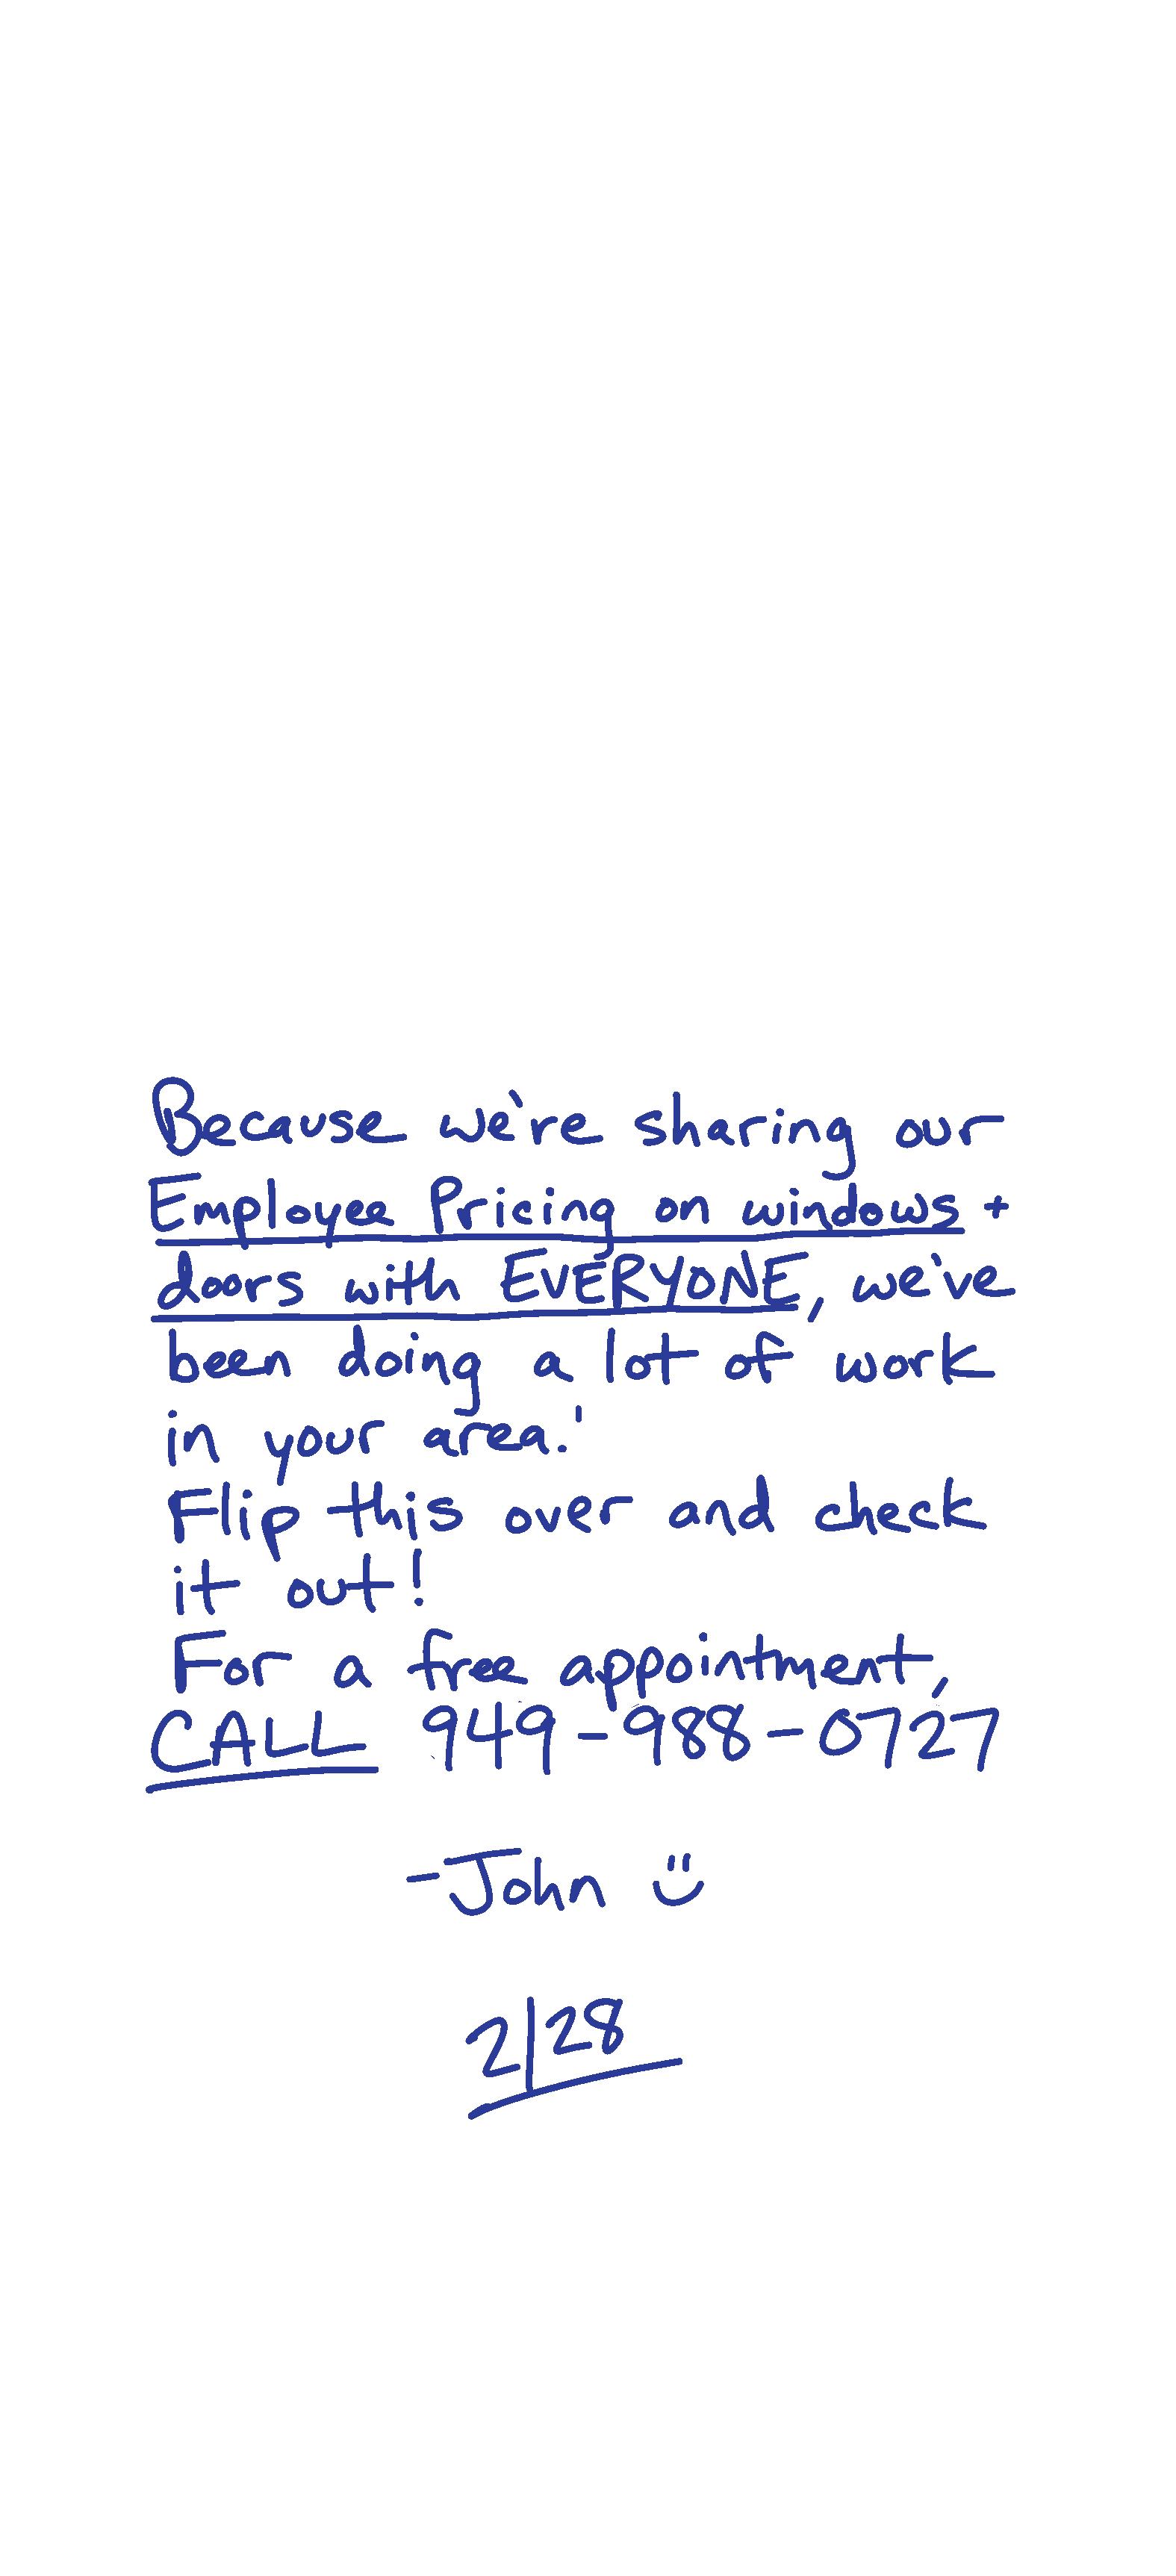 Because we're sharing our
Employee Pricing on windows +
doors with EVERYONE, we've
been doing a lot of work
in your area.'
Flip this over and check
it out!
For a free appointment,
CALL 949-988-0727
-John
2/28